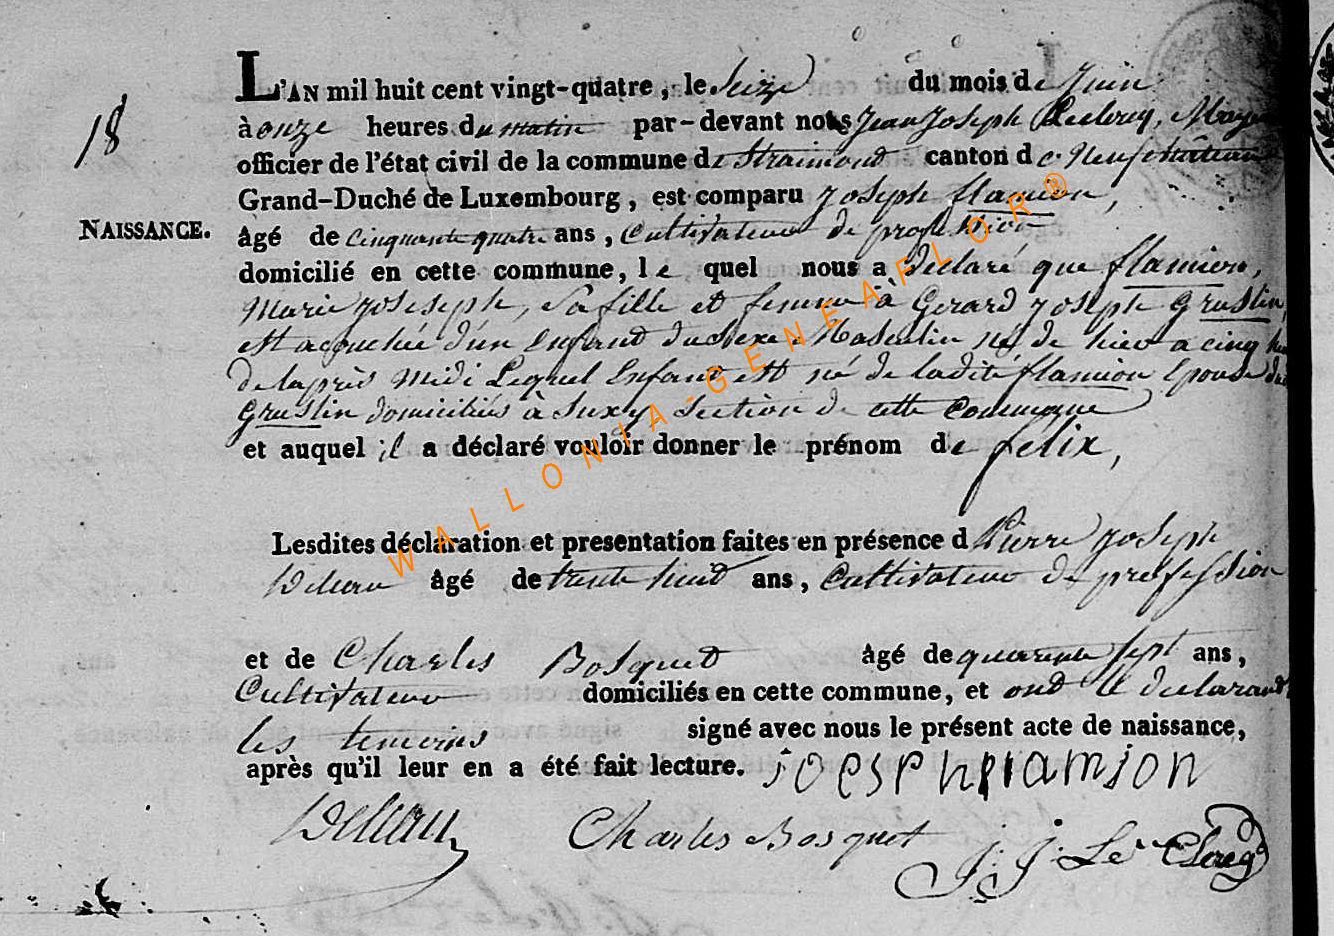 L'AN mil huit cent vingt-quatre, le Seize du mois de Juin
18
à onze heures du matin par-devant nous Jean Joseph Leclercq, Mayeur
officier de l'état civil de la commune de Straimont canton de Neufchâteau
Grand-Duché de Luxembourg, est comparu Joseph flamion,
NAISSANCE.
âgé de cinquante quatre ans, Cultivateur de profession
domicilié en cette commune, le quel nous a déclaré que flamion,
Marie joseseph, Sa fille et femme à Gerard joseph Gruslin,
est accouchée d'un Enfant du Sexe Masculin né de hier a cinq
de laprès midi Lequel Enfant est né de ladite flamion Epouse dudit
Gruslin domiciliés à Suxy Section de cette Commune
et auquel il a déclaré vouloir donner le prénom de felix,
Lesdites déclaration et presentation faites en présence d Pierre joseph
âgé de trente huit ans, Cultivateur de profession
et de Charles Bosquet âgé de quarante sept ans,
Cultivateur domiciliés en cette commune, et ont le declarant
les temoins signé avec nous le présent acte de naissance,
après qu'il leur en a été fait lecture. joesph flamion
Charles Bosquet
J. J. Le Clercq
WALLONIA-GENEAFLOR®